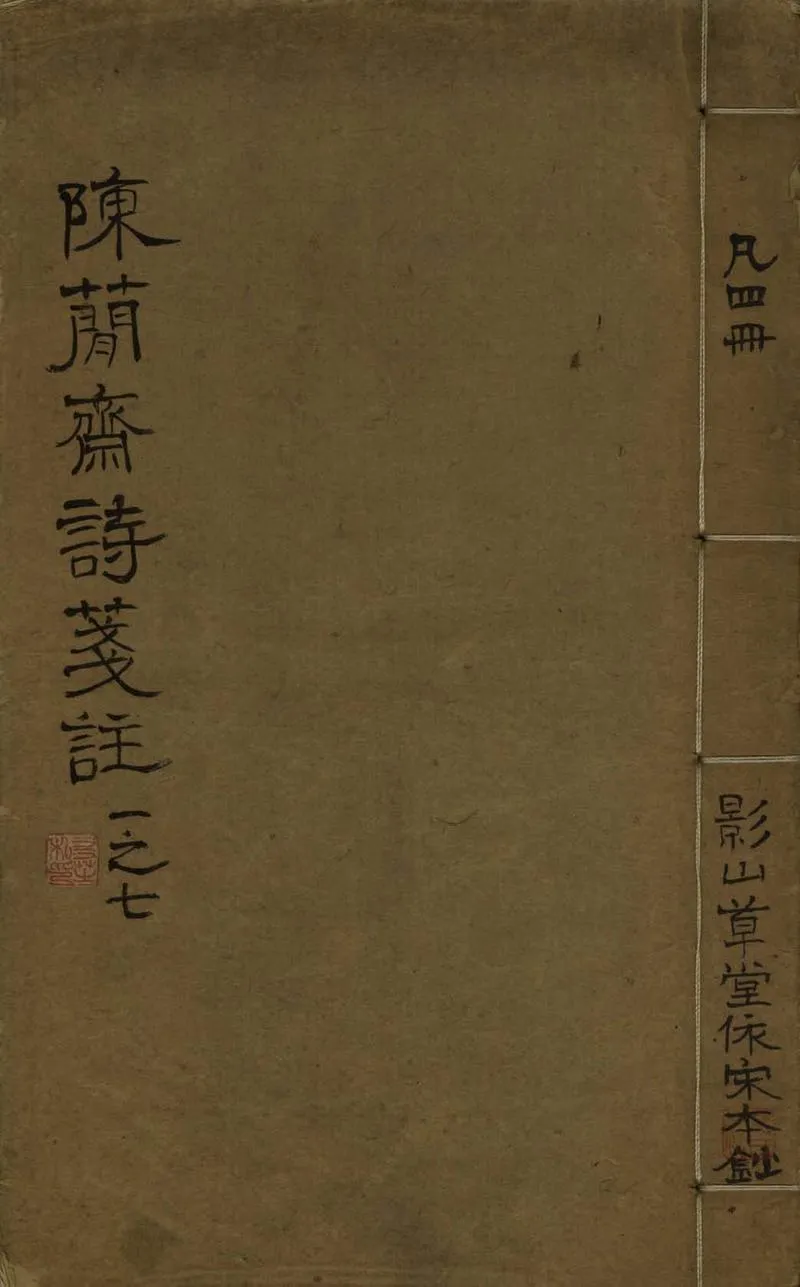 凡四冊
影山草堂依宋本鈔
陳蕳齋詩箋註
一之七